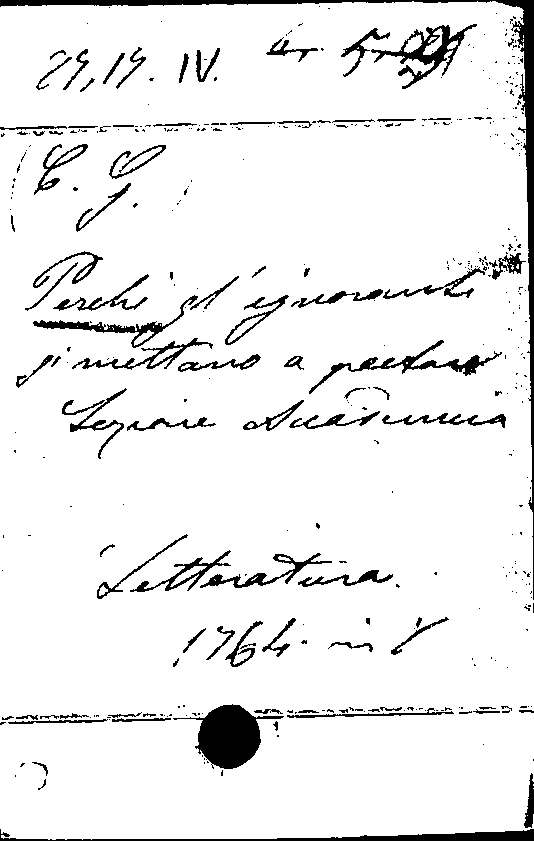 29,19. IV.
(C. G.)
Perchè gl'ignoranti
si mettano a poetare
Lezione Accademica
Letteratura.
1764. in 8